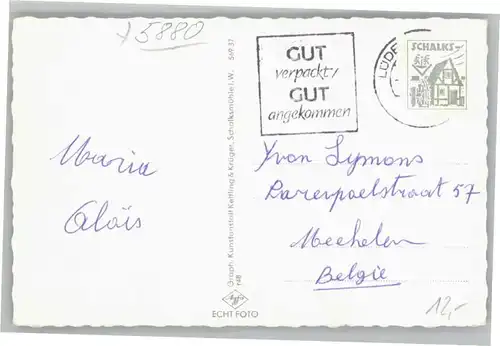 5880
GUT
verpackt,
GUT
angekommen
LÜDE
SCHALKS-
Maria
Alois
Yvon Symons
Rarenpaelstraat 57
Mechelen
Belgie
Graph. Kunstanstalt Kettling & Krüger, Schalksmühle i. W.
569 37
Agfa
ECHT FOTO
12,-